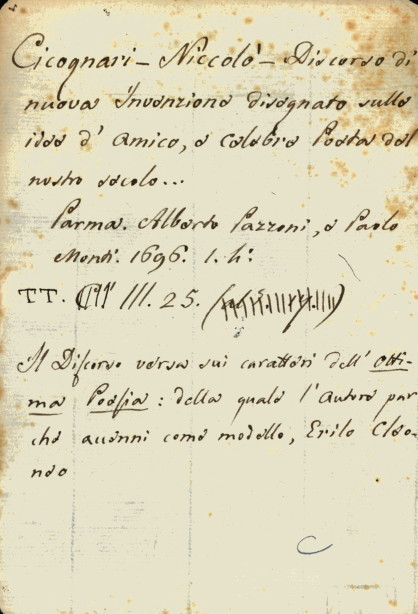 Cicognari - Niccolò - Discorso di
nuova Invenzione disegnato sulle
idee d' Amico, e celebre Poeta del
nostro secolo...
Parma. Alberto Pazzoni, e Paolo
Monti. 1696. 1. h:
TT. III. 25.
Il Discorso versa sui caratteri dell' Otti-
ma Poesia: della quale l' Autore par
che accenni come modello, Erilo Cleo-
neo